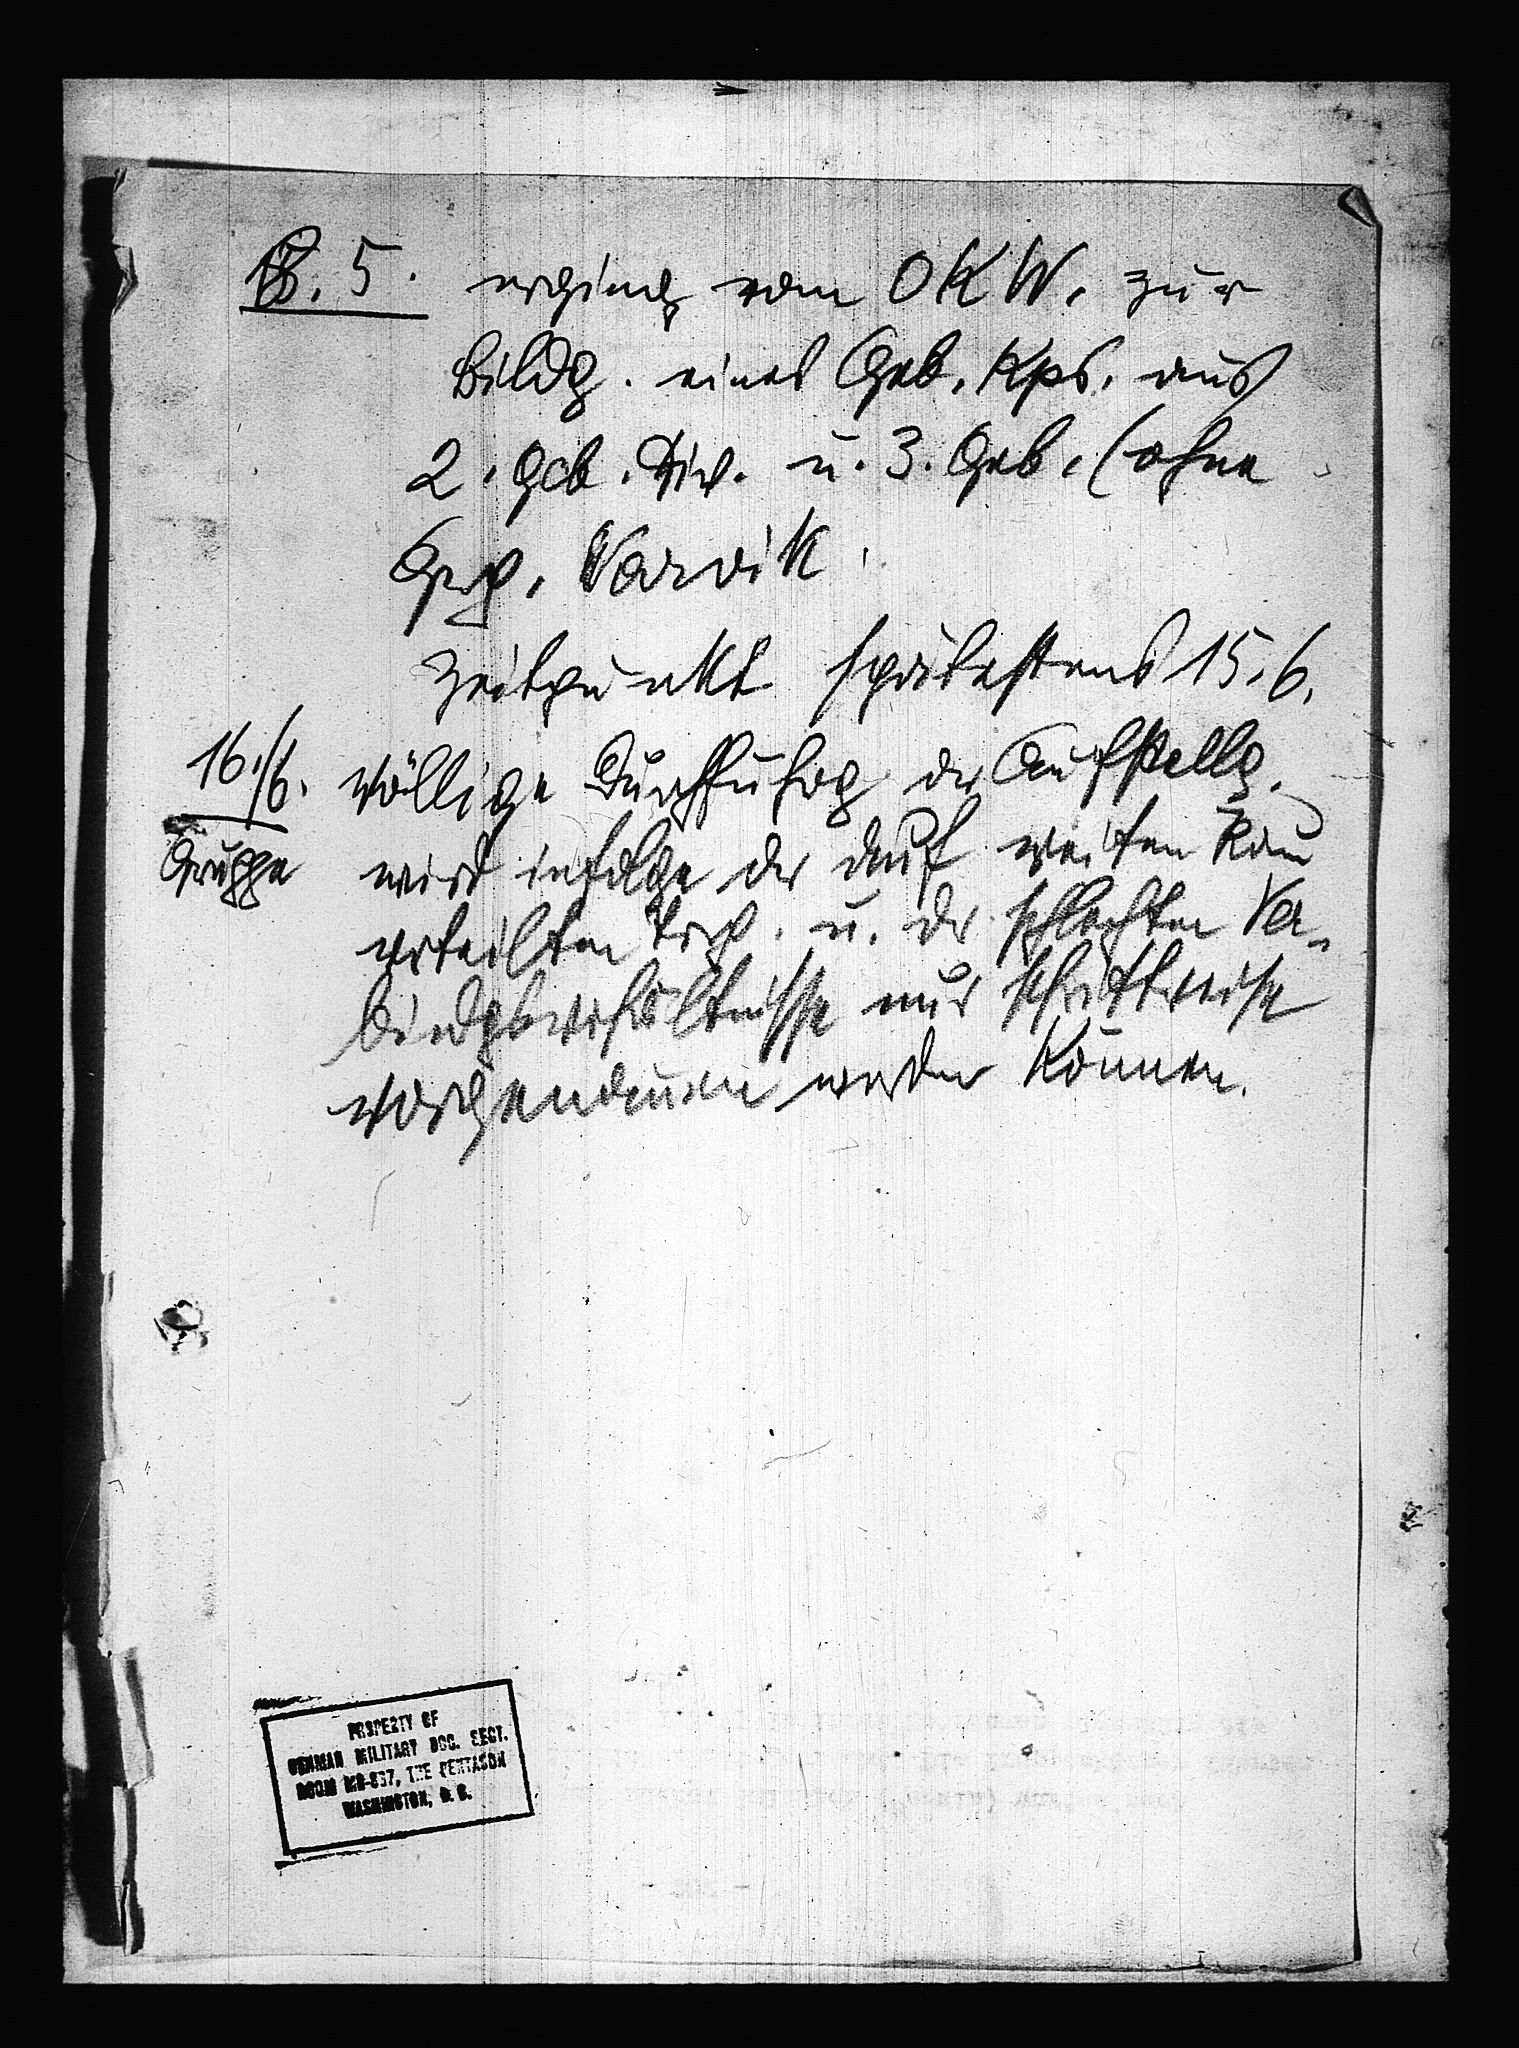 18. 5. erging vom OKW. zur
Bildg. eines Geb. Kps. aus
2. Geb. Div. u. 3. Geb. (ohne
Grp. Narvik.
Zeitpunkt spätestens 15.6.
16./6. völlige Durchführg der Aufstellg.
Gruppe wird infolge der auf weiten Raum
verteilten Trp. u. der schlechten Ver-
bindgsverhältnisse nur schrittweise
werden können.
PROPERTY OF
GERMAN MILITARY DOC. SECT.
ROOM MB-857, THE PENTAGON
WASHINGTON, D. C.